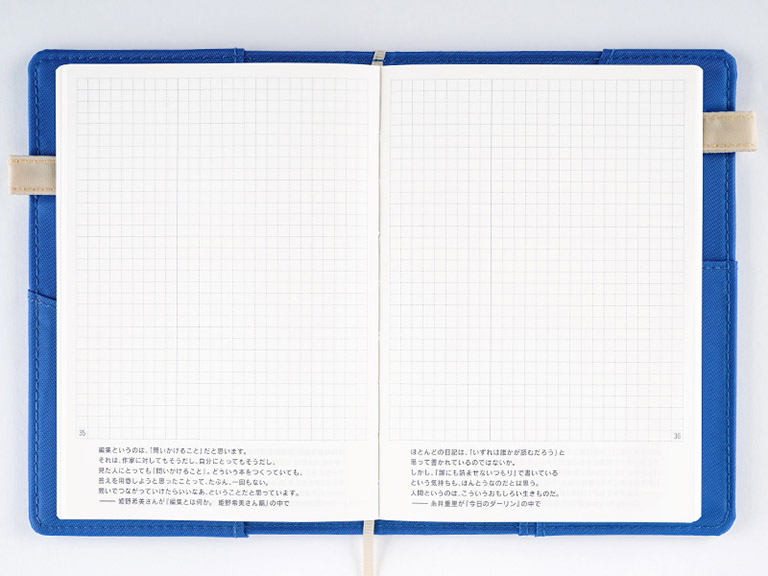 35
編集というのは、「問いかけること」だと思います。
それは、作家に対してもそうだし、自分にとってもそうだし、
見た人にとっても「問いかけること」。どういう本をつくっていても、
答えを用意しようと思ったことって、たぶん、一回もない。
問いでつながっていけたらいいなあ、ということだと思っています。
—— 姫野希美さんが『編集とは何か。 姫野希美さん篇』の中で
36
ほとんどの日記は、「いずれは誰かが読むだろう」と
思って書かれているのではないか。
しかし、「誰にも読ませないつもり」で書いている
という気持ちも、ほんとうなのだとは思う。
人間というのは、こういうおもしろい生きものだ。
—— 糸井重里が『今日のダーリン』の中で